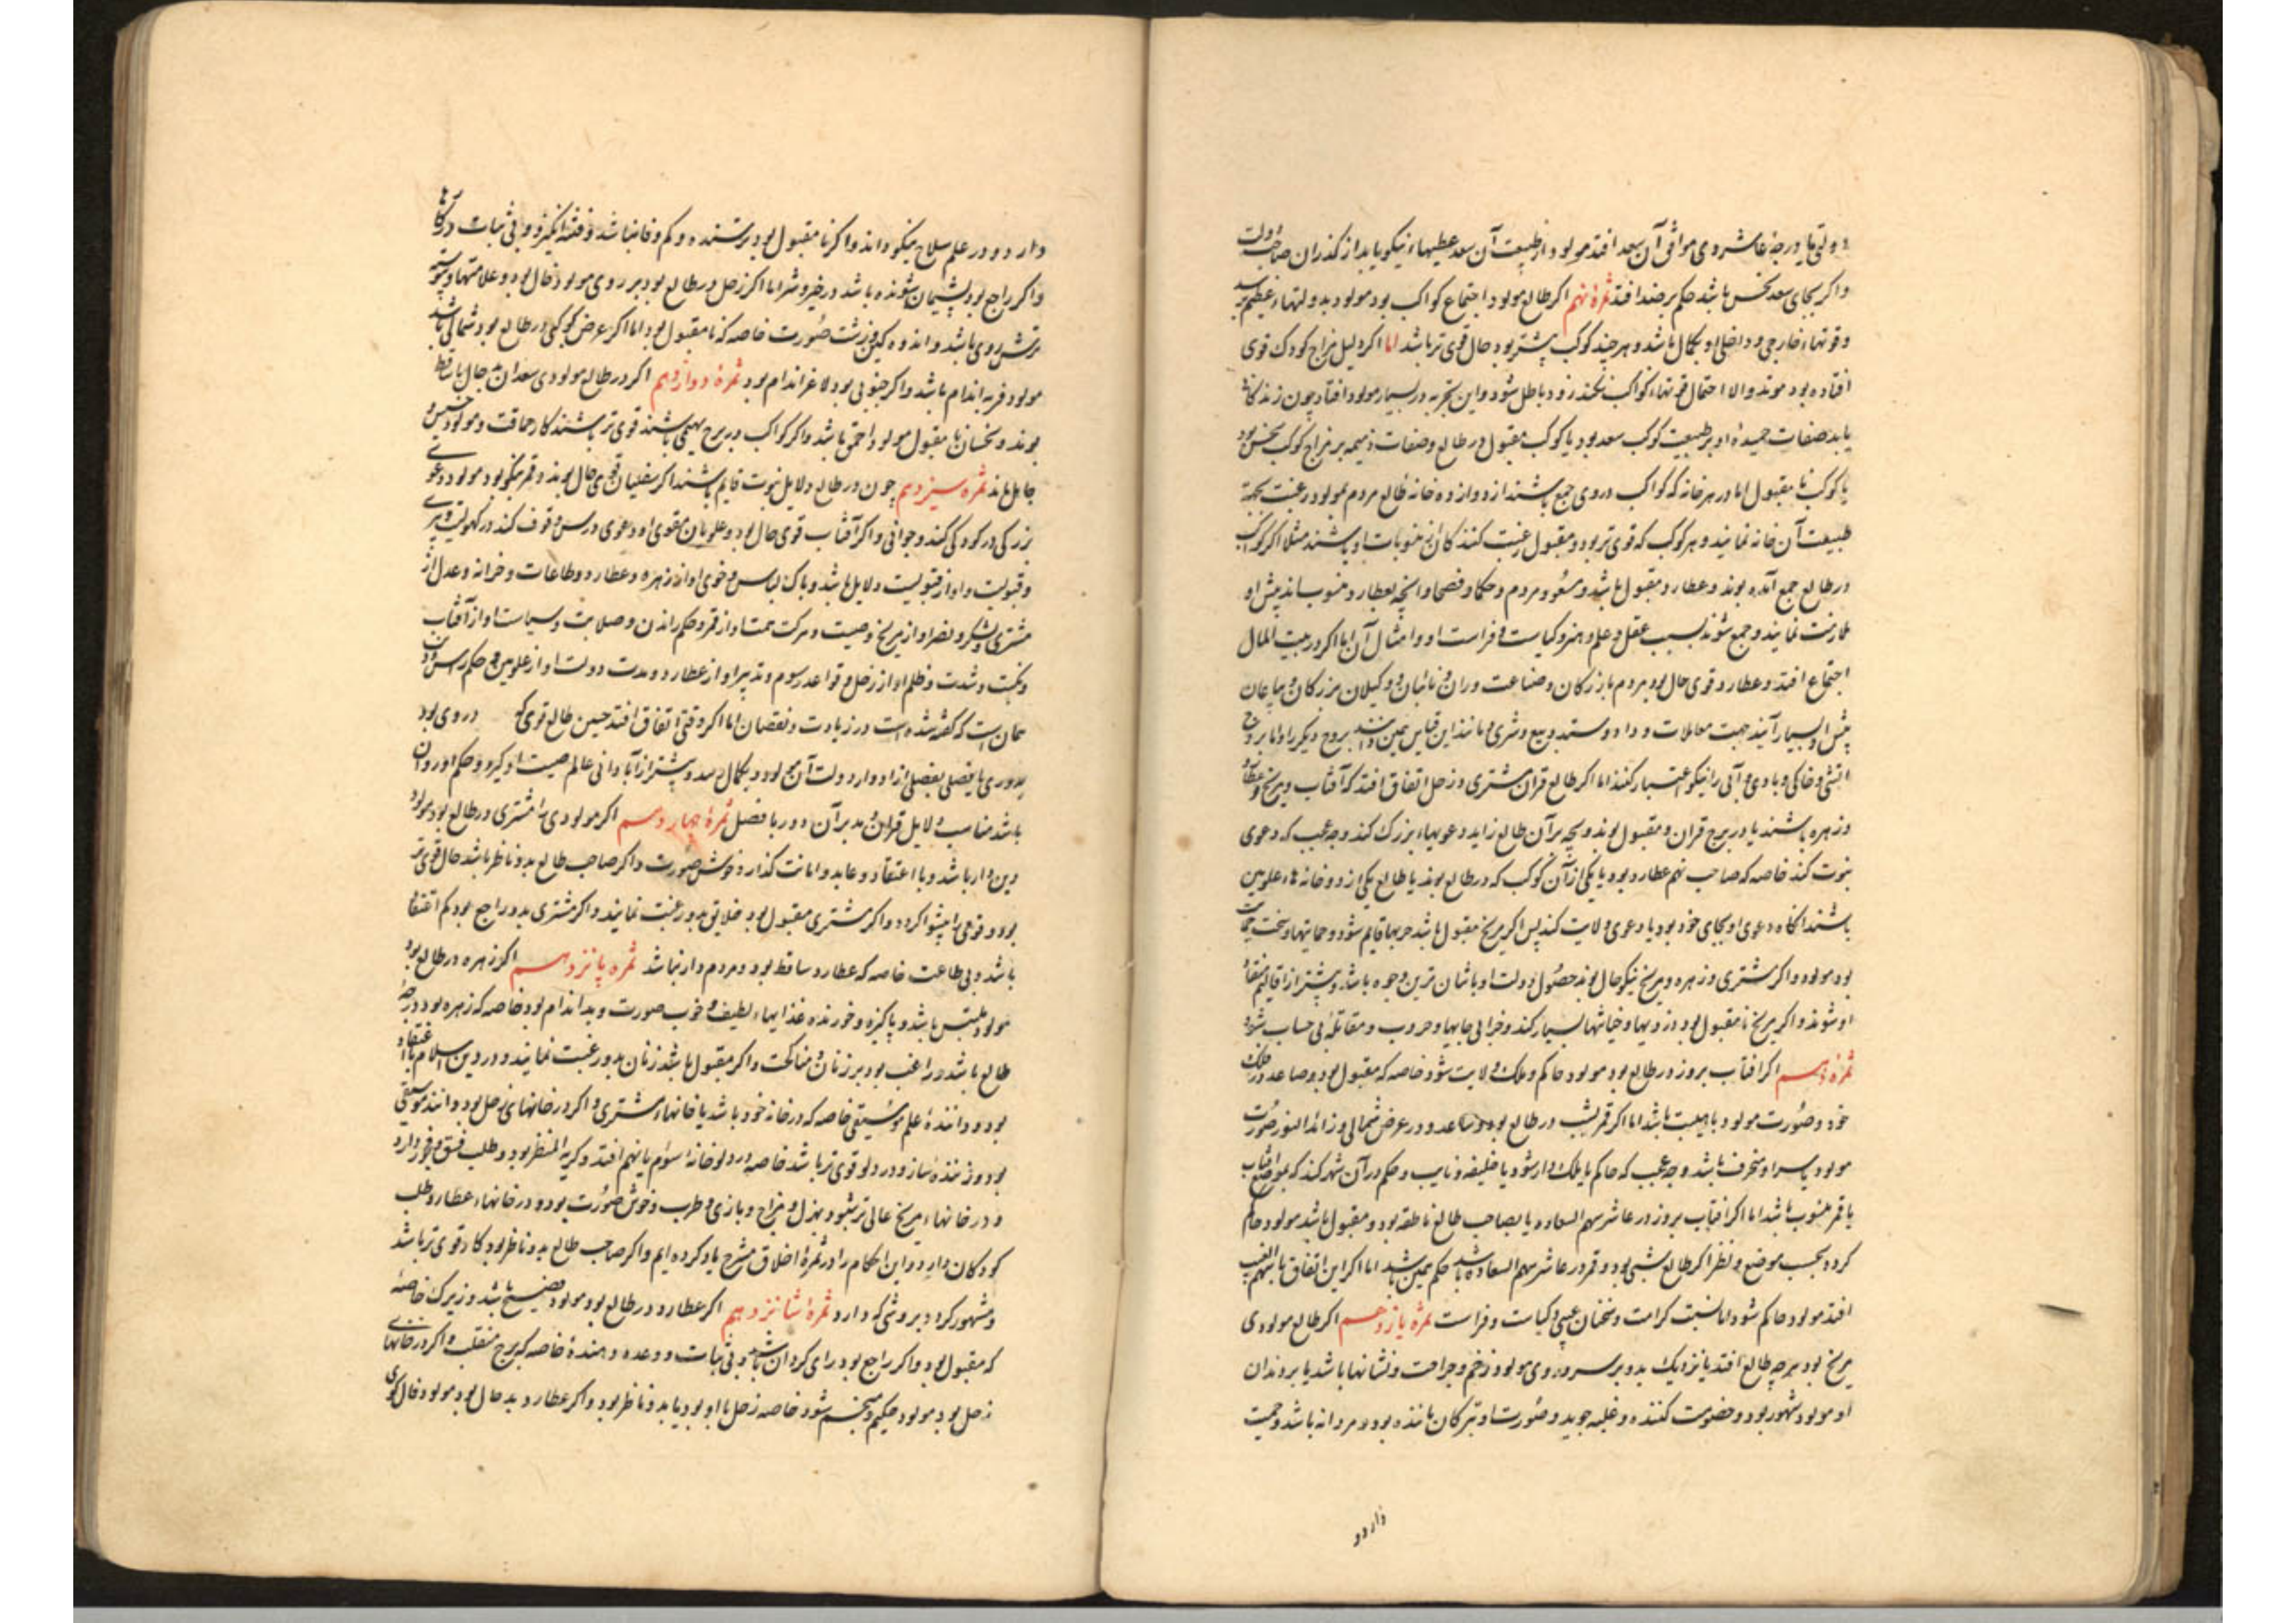 دولتی یابد درجهٔ عاشر وی موافق آن سعد افتد مولود از طبیعت آن سعد عطیهاء نیکو یابد از کذران صاحب دولت
واکر بجای سعد نحس باشد حکم بر ضد افتد ثمرهٔ نهم اکر طالع مولود اجتماع کواکب بود مولود بدولتهاء عظیم رسد
وقوتهاء خارجی و داخلی او بکمال باشد و هر چند کوکب بیشتر بود حال قوی تر باشد اما اکر دلیل مزاج کودک قوی
افتاده بود موتد والا احتمال قوتهاء کواکب نکند زود باطل شود واین تجربه در بسیار مولود افتاد چون زندکانی
یابد صفات حمیدهٔ او بر طبیعت کوکب سعد بود یا کوکب مقبول در طالع وصفات ذمیمه بر مزاج کوکب نحس بود
یا کوکب نا مقبول اما در هر خانه که کواکب در وی جمع باشند از دوازده خانهٔ طالع مردم بمولود رغبت بجهة
طبیعت آن خانه نمایند و هر کوکب که قوی تر بود و مقبول رغبت کنندکان از منسوبات او باشند مثلا اکر کواکب
در طالع جمع آمده بوند و عطارد مقبول باشد و مسعود مردم و حکما و فصحا وانچه بعطارد منسوب اند پیش او
ملازمت نمایند و جمع شوند بسبب عقل و علم و هنر و کیاست و فراست او و امثال آن اما اکر در بیت المال
اجتماع افتد و عطارد قوی حال بود مردم بازرکان و صناعت وران و نائبان و وکیلان بزرکان و بیاعان
پیش او بسیار آیند جهت معاملات و داد و ستد و بیع و شری و مانند این قیاس همین دانند بروج دیکر را واما بروج
اتشی و خاکی و بادی و آبی را نیکو اعتبار کنند اما اکر طالع قران مشتری و زحل اتفاق افتد که آفتاب و مریخ و عطارد
و زهره باشند یا در برج قران و مقبول بوند و بچه بر آن طالع زاید دعویهاء بزرک کند و چه عجب که دعوی
نبوت کند خاصه که صاحب نهم عطارد بود یا یکی از آن کوکب که در طالع بوند یا طالع یکی از دو خانه هاء علویین
باشند انکاه دعوی او بجای خود بود یا دعوی ولایت کند پس اکر مریخ مقبول باشد حربها قایم شود و حمایتها و سخت حمیت
بود مولود واکر مشتری و زهره و مریخ نیکو حال بوند حصول دولت او باشان ترین وجوه باشد و بیشتر از اقالیم منقاد
او شوند واکر مریخ نا مقبول بود دزدیها و خیانتها بسیار کند و خرابی جایها و حروب و مقاتلهٔ بی حساب شود
ثمره دهم اکر افتاب بروز در طالع بود مولود حاکم و ملک و ولایت شود خاصه که مقبول بود و صاعد در فلک
خود و صورت مولود با هیبت باشد اما اکر قمر بشب در طالع بود و صاعد و در عرض شمالی و زائد النور صورت
مولود پسر او منحرف باشد و چه عجب که حاکم یا ملک دار شود یا خلیفه و نایب و حکم در آن شهر کند که بمواضع افتاب
یا قمر منسوب باشد اما اکر افتاب بروز در عاشر سهم السعاده یا بصاحب طالع ناظر بود و مقبول باشد مولود حاکم
کردد بحسب موضع و نظر اکر طالع شبی بود و قمر در عاشر سهم السعاده باشد حکم همین باشد اما اکر این اتفاق با سهم الغیب
افتد مولود حاکم شود اما نسبت کرامت و سخنان غیبی و کیاست و فراست ثمره یازدهم اکر طالع مولودی
مریخ بود بدرجهٔ طالع افتد یا نزدیک بدو بر سر و روی مولود زخم و جراحت و نشانها باشد یا بر دندان
او مولود مشهور بود و خصومت کننده و غلبه جوید و صورت او بترکان ماننده بود و مردانه باشد و حمیت
دارد و
دارد و در علم سلاح نیکو داند واکر نا مقبول بود برستنده و کم وفا نباشد و فتنه انکیز و بی ثبات در کارها
واکر راجع بود پشیمان شونده باشد در خیر و شر اما اکر زحل در طالع بود بر روی مولود خال بود و علامتها و پیوسته
ترش روی باشد و اندوه کین و زشت صورت خاصه که نا مقبول بود اما اکر عرض کوکبی در طالع بود شمالی باشد
مولود فربه اندام باشد واکر جنوبی بود لاغر اندام بود ثمرهٔ دوازدهم اکر در طالع مولودی سعدان بد حال یا ساقط
بوند و نحسان نا مقبول مولود احمق باشد واکر کواکب در برج بهیمی باشند قوی تر باشند کار حماقت و مولود خسیس و
جاهل ماند ثمره سیزدهم چون در طالع دلایل نبوت قایم باشند اکر سفلیان قوی حال بوند و قمر نیکو بود مولود دعوی
بزرکی در کودکی کند و جوانی واکر آفتاب قوی حال بود و علویان مقوی او دعوی درس و وقوف کند در کهولیت و پیری
و قبولیت او از قبولیت دلایل باشد و پاک لباس و خوی او از زهره و عطارد و طاعات و خزانه و عدل از
مشتری و لشکر و نصر او از مریخ و صیت و حرکت همت او از قمر و حکم راندن و صلابت و سیاست او از آفتاب
و نکبت و شدت و ظلم او از زحل و قواعد رسوم و تدبیر او از عطارد و مدت دولت او از علویین و حکم راس و ذنب
همان است که کفته شده است در زیادت و نقصان اما اکر وقتی اتفاق افتد حسن طالع قوی که در وی بود
بدوری یا فصلی بفصلی از ادوار دولت آن مولود بکمال رسد و بیشتر از آبادانی عالم صیت او کیرد و حکم او روان
باشد مناسب دلایل قران و مدبر آن دور با فصل ثمرهٔ چهاردهم اکر مولودی را مشتری در طالع بود مولود
دین دار باشد و با اعتقاد و عابد و امانت کذار و خوش صورت واکر صاحب طالع بدو ناظر باشد حال قوی تر
بود و قومی را پیشوا کردد واکر مشتری مقبول بود خلایق بدو رغبت نمایند واکر مشتری بدو راجع بود کم اعتقاد
باشد و بی طاعت خاصه که عطارد ساقط بود و مردم دار نباشد ثمره پانزدهم اکر زهره در طالع بود
مولود ملتبس باشد و پاکیزه و خورنده غذایهاء لطیف و خوب صورت و بداندام بود خاصه که زهره بود در درجهٔ
طالع باشد و راغب بود بر زنان و مناکحت واکر مقبول باشد زنان بدو رغبت نمایند و در دین اسلام با اعتقاد
بود و دانندهٔ علم موسیقی خاصه که در خانه خود باشد یا خانهاء مشتری واکر در خانهای زحل بود دانند موسیقی
بود و زننده ساز و در دلو قوی تر باشد خاصه در دلو خانهٔ سوم یا نهم افتد و کریه المنظر بود و طلب فسق و فجور دارد
و در خانهاء مریخ عالی تر شود بهزل و مزاح و بازی و طرب و خوش صورت بود و در خانهاء عطارد طلب
کودکان دارد و این احکام را در ثمرهٔ اخلاق مشرح یاد کرده ایم واکر صاحب طالع بدو ناظر بود کار قوی تر باشد
و مشهور کردد بروشی که دارد ثمرهٔ شانزدهم اکر عطارد در طالع بود مولود فصیح باشد و زیرک خاصهٔ
که مقبول بود واکر راجع بود رای کردان باشد و بی ثبات و وعده دهندهٔ خاصه که برج منقلب واکر در خانهای
زحل بود مولود حکیم و منجم شود خاصه زحل با او بود یا بدو ناظر بود واکر عطارد بد حال بود مولود فال کوی